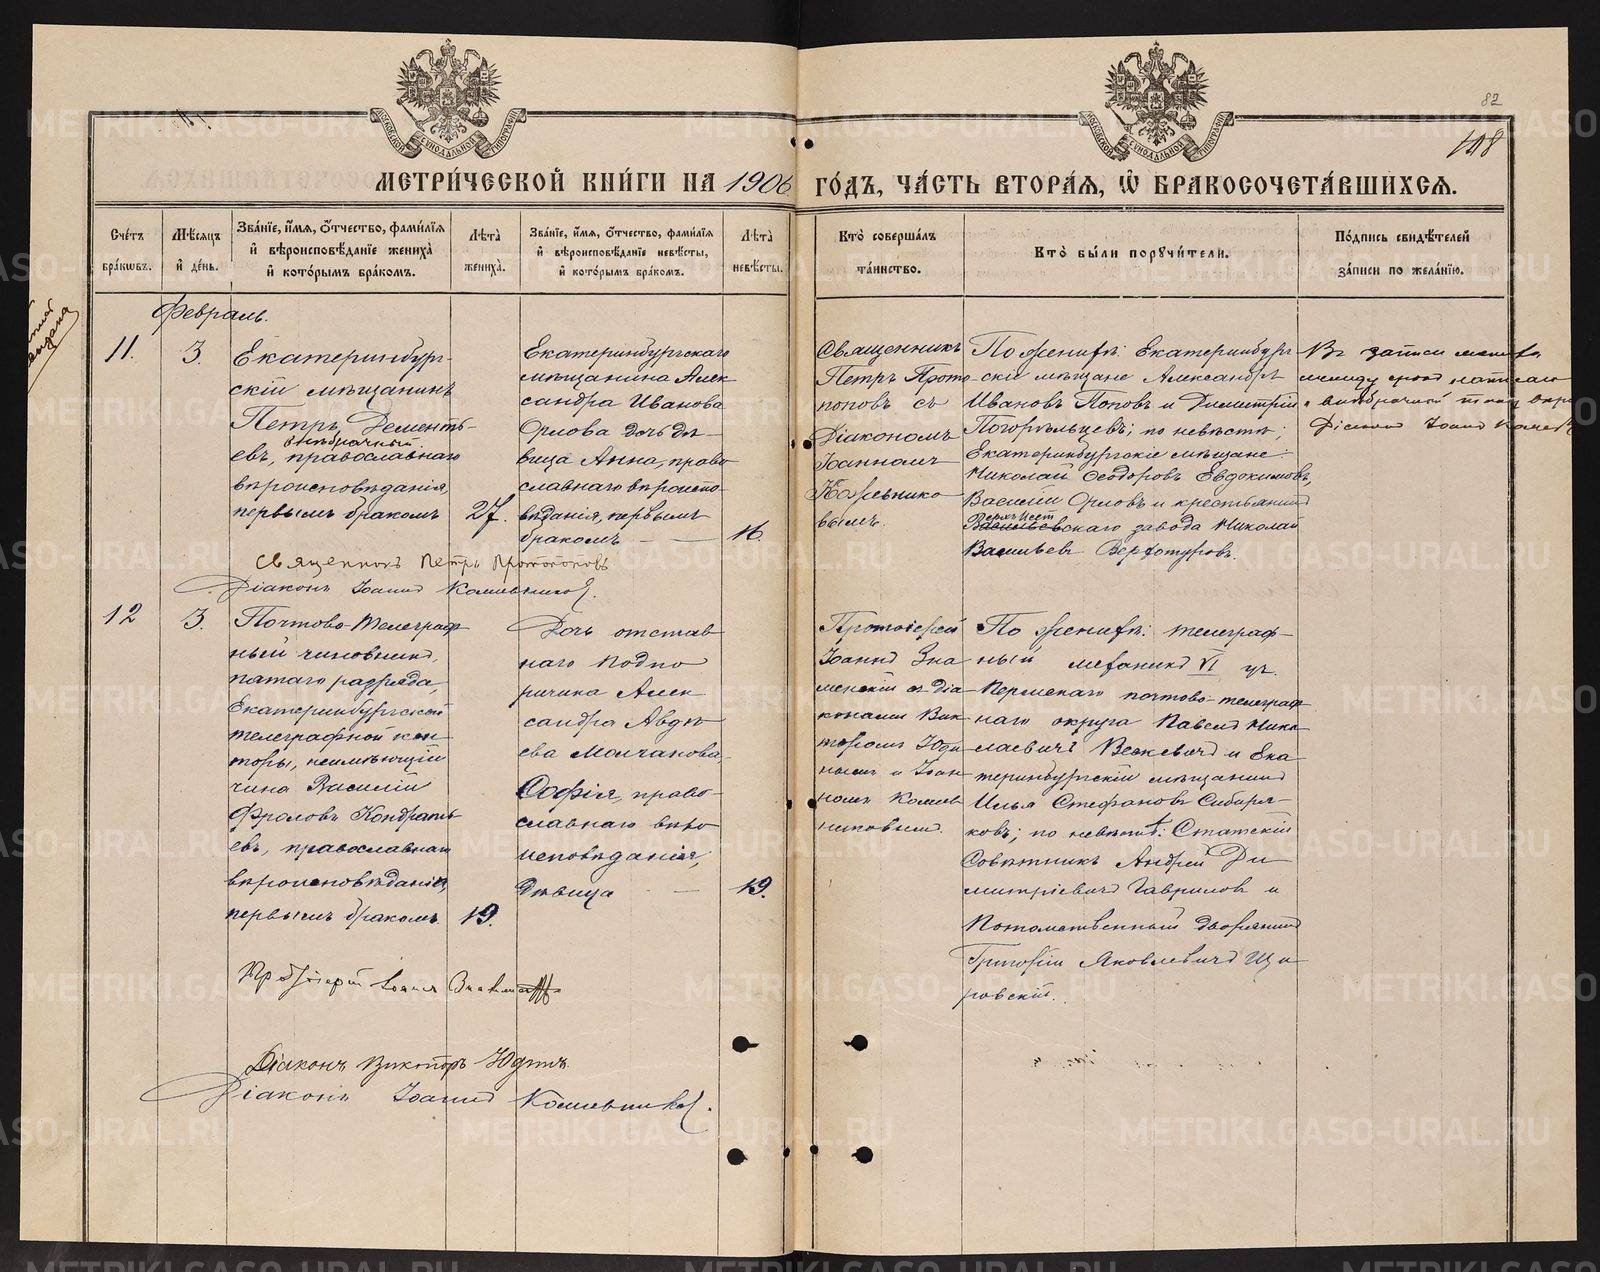 82
108
МОСКОВСКОЙ СѴНОДАЛЬНОЙ ТИПОГРАФІИ
МОСКОВСКОЙ СѴНОДАЛЬНОЙ ТИПОГРАФІИ
МЕТРИ́ЧЕСКОЙ КНИ́ГИ НА 1906 ГО́ДЪ, ЧА́СТЬ ВТОРА́Ѧ, Ѽ БРАКОСОЧЕТА́ВШИХСѦ.
Сче́тъ
бра́кѡвъ.
Мѣ́сѧцъ
и҆ де́нь.
Зва́нїе, и҆́мѧ, ѻ҆́тчество, фами́лїѧ
и҆ вѣроисповѣ́данїе жениха̀
и҆ кото́рымъ бра́комъ.
Лѣ́та
жениха̀.
Зва́нїе, и҆́мѧ, ѻ҆́тчество, фами́лїѧ
и҆ вѣроисповѣ́данїе невѣ́сты,
и҆ кото́рымъ бра́комъ.
Лѣ́та
невѣ́сты.
Кто̀ соверша́лъ
та́инство.
Кто̀ бы́ли порꙋчи́тели.
По́дпись свидѣ́телей
за́писи по жела́нїю.
выдана
Февраль.
11.
3.
Екатеринбург-
скій мѣщанинъ
Петръ Дементь-
внѣбрачный
евъ, православнаго
вѣроисповѣданія,
первымъ бракомъ
27.
Екатеринбургскаго
мѣщанина Алек
сандра Иванова
Орлова дочь дѣ-
вица Анна, право
славнаго вѣроиспо-
вѣданія, первымъ
бракомъ
16.
Священникъ
Петръ Прото-
поповъ съ
Діакономъ
Іоанномъ
вымъ.
По женихѣ: Екатеринбург
скіе мѣщане Александръ
Ивановъ Поповъ и Димитрій
Погорѣльцевъ; по невѣстѣ;
Екатеринбургскіе мѣщане:
Николай Ѳеодоровъ Евдокимовъ,
Василій Орловъ и крестьянинъ
Васильевскаго завода Николай
Васильевъ Верхотуровъ.
Въ записи
между строк написано
Діаконъ Іоаннъ
Священникъ Петръ Протопоповъ
Діаконъ Іоаннъ
12
3.
Почтово-телеграф
ный чиновникъ,
пятаго разряда,
Екатеринбургской
телеграфной кон
торы, неимѣющій
чина Василій
Фроловъ Кондрать
евъ, православнаго
вѣроисповѣданія,
первымъ бракомъ.
19.
Дочь отстав
наго подпо
ручика Алек
сандра Авдѣ
ева Молчанова,
Софія, право-
славнаго вѣро
исповѣданія,
дѣвица
19.
Протоіерей
Іоаннъ Зна
менскій съ діа-
конами Вик
торомъ Юди
нымъ и Іоан
номъ
По женихѣ: телеграф-
ный механикъ VI
Пермскаго почтово-телеграф
наго округа Павелъ Нико
лаевичъ и Ека
теринбургскій мѣщанинъ
Илья Стефановъ Сибиря-
ковъ; по невѣстѣ: Статскій
Совѣтникъ Андрей Ди
митріевичъ Гавриловъ и
Потомственный дворянинъ
Григорій Яковлевичъ Щи
ровскій.
Протоіерей Іоаннъ
Діаконъ Викторъ Юдинъ
Діаконъ Іоаннъ